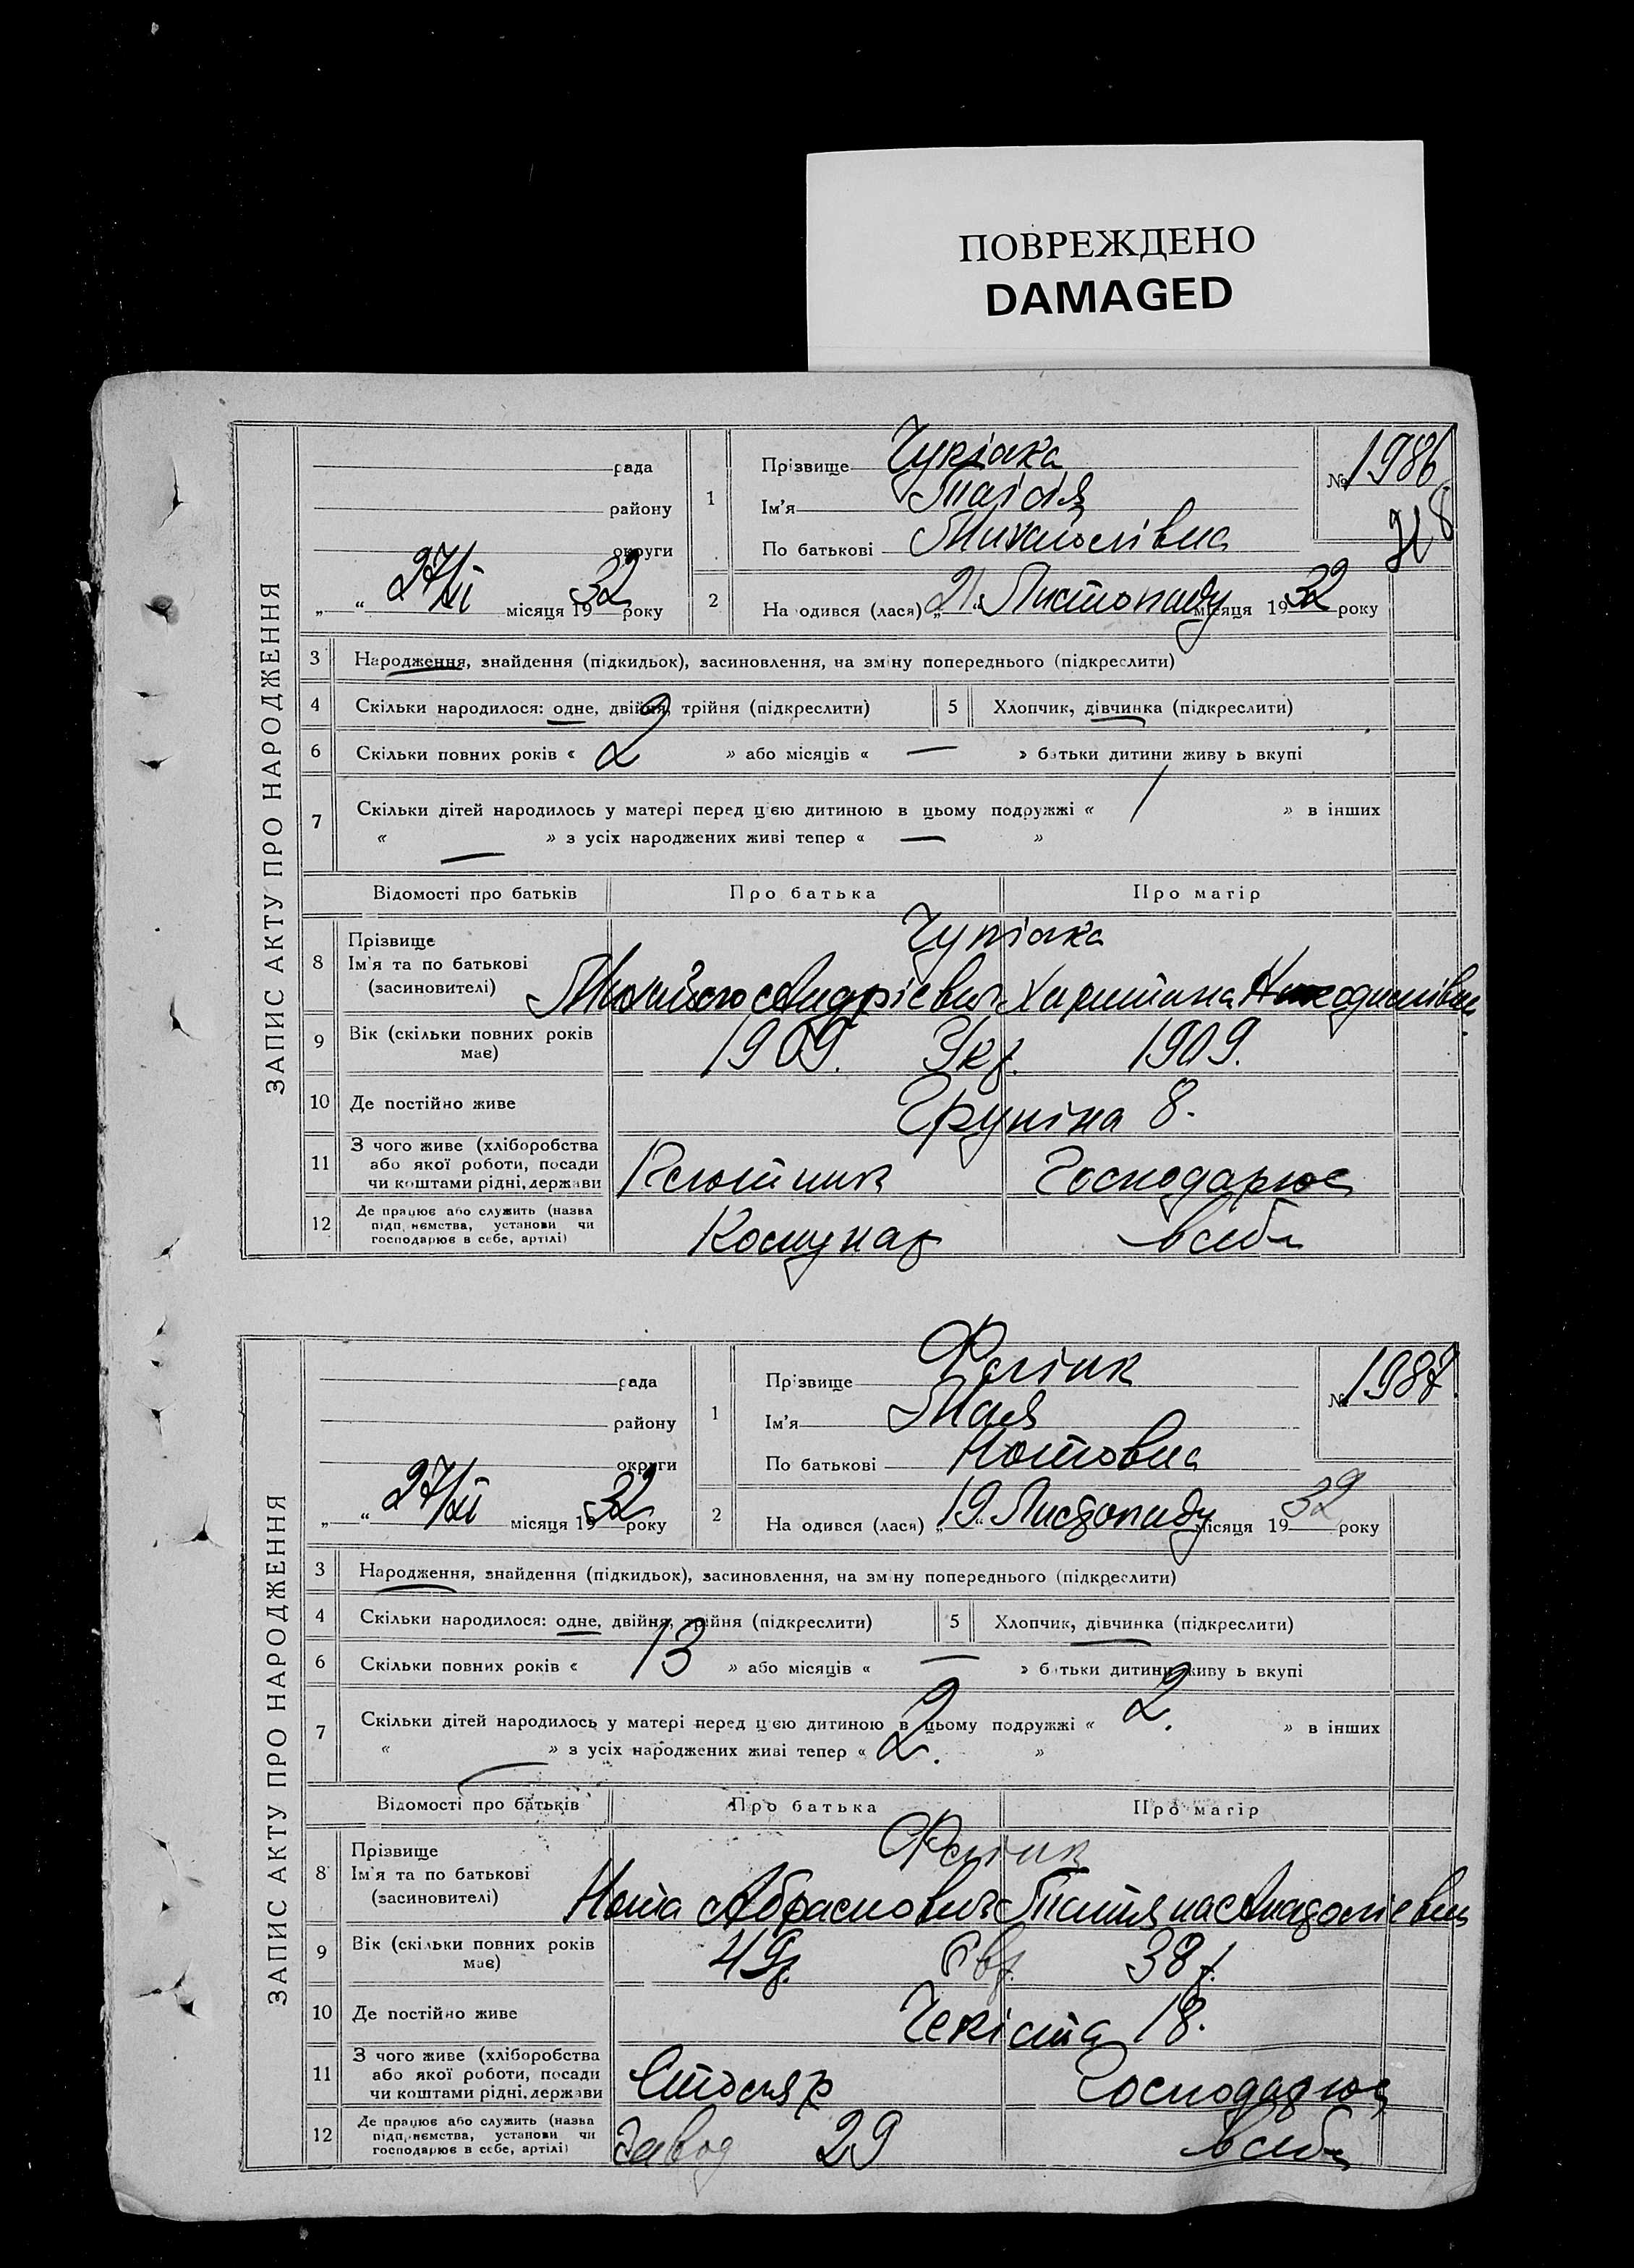 ПОВРЕЖДЕНО
DAMAGED
ЗАПИС АКТУ ПРО НАРОДЖЕННЯ
рада
району
округи
„ “ 27/XI місяця 1932 року
1
Прізвище
Ім'я Таісія
По батькові Михайлівна
№ 1986
2
На одився (лася) „21“ Листопаду місяця 1932 року
3 Народження, знайдення (підкидьок), засиновлення, на зміну попереднього (підкреслити)
4 Скільки народилося: одне, двійня, трійня (підкреслити) 5 Хлопчик, дівчинка (підкреслити)
6 Скільки повних років « 2 » або місяців « — » батьки дитини живу ь вкупі
7 Скільки дітей народилось у матері перед цією дитиною в цьому подружжі « 1 » в інших
« — » з усіх народжених живі тепер « — »
Відомості про батьків Про батька Про матір
8 Прізвище
Ім'я та по батькові
(засиновителі)
Михайло Андрієвич Харитина
9 Вік (скільки повних років має) 1909. Укр. 1909.
10 Де постійно живе 8.
11 З чого живе (хліборобства або якої роботи, посади чи коштами рідні, держави Господарює
12 Де працює або служить (назва підп, нємства, установи чи господарює в себе, артілі) Комунар в себе
ЗАПИС АКТУ ПРО НАРОДЖЕННЯ
рада
району
округи
„ “ 27/XI місяця 1932 року
1
Прізвище Фелінк
Ім'я Мая
По батькові Нотовна
№ 1987.
2
На одився (лася) „19“ Листопаду місяця 1932 року
3 Народження, знайдення (підкидьок), засиновлення, на зміну попереднього (підкреслити)
4 Скільки народилося: одне, двійня, трійня (підкреслити) 5 Хлопчик, дівчинка (підкреслити)
6 Скільки повних років « 13 » або місяців « — » батьки дитини живу ь вкупі
7 Скільки дітей народилось у матері перед цією дитиною в цьому подружжі « 2. » в інших
« — » з усіх народжених живі тепер « 2. »
Відомості про батьків Про батька Про матір
8 Прізвище
Ім'я та по батькові
(засиновителі)
Фелінк
Нота Абрамович Татяна Анатолієвна
9 Вік (скільки повних років має) 49р. Євр. 38 р.
10 Де постійно живе Чекіста 18.
11 З чого живе (хліборобства або якої роботи, посади чи коштами рідні, держави Столяр Господарює
12 Де працює або служить (назва підп, нємства, установи чи господарює в себе, артілі) Завод 29 в себе